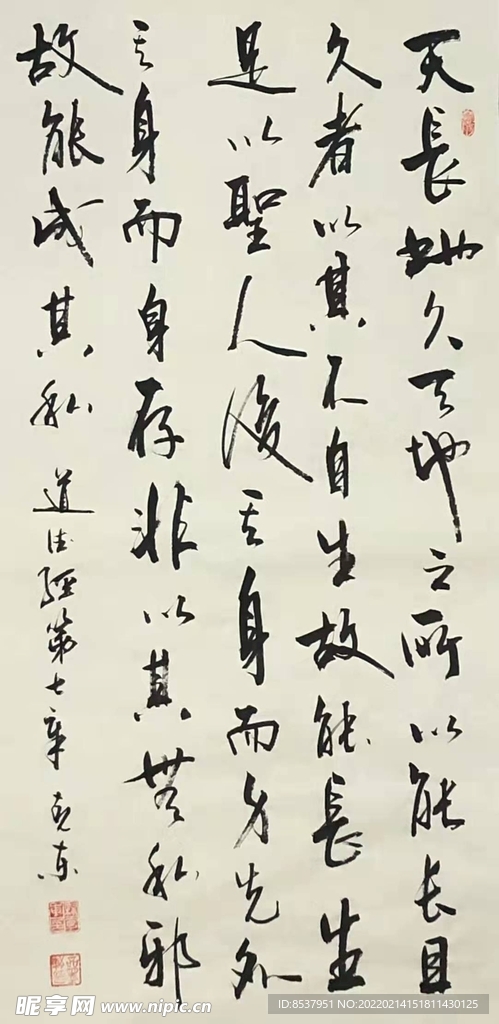 天長地久天地之所以能长且
久者以其不自生故能長生
是以聖人後其身而身先外
其身而身存非以其無私邪
故能成其私 道德經第七章
昵享网 www.nipic.cn
ID:8537951 NO:20220214151811430125